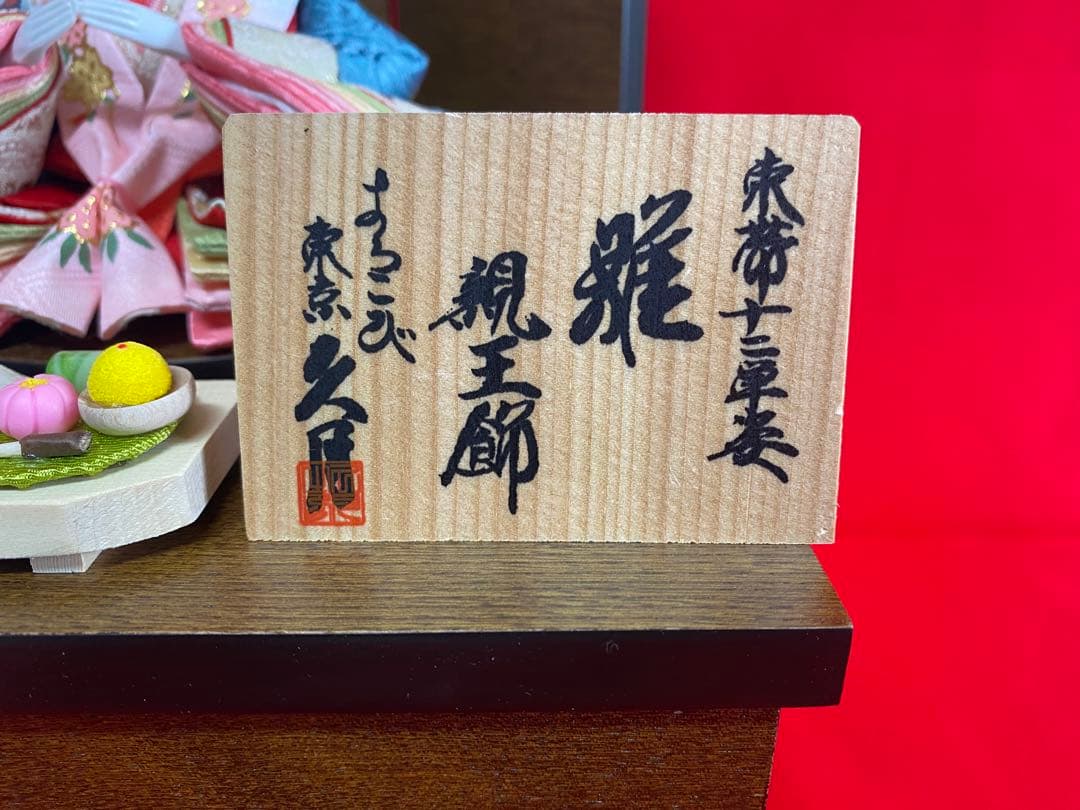 束帯十二単姿
雛
親王飾
よろこび
東京久月